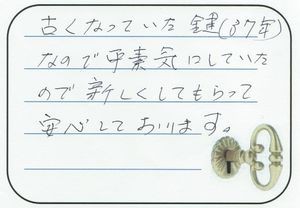 古くなっていた鍵(37年)
なので平素気にしていた
ので新しくしてもらって
安心しております。